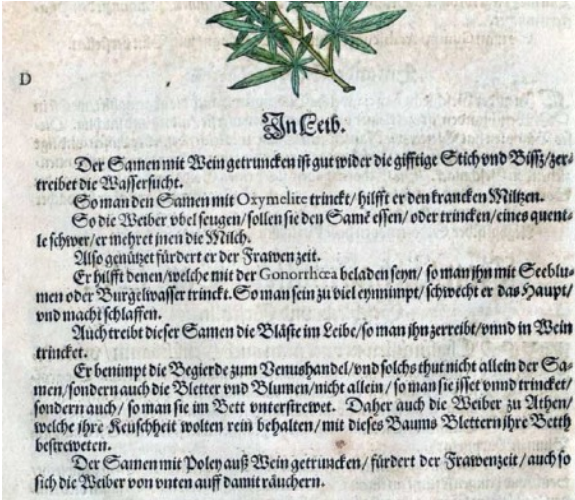 D
In Leib.
Der Samen mit Wein getruncken ist gut wider die gifftige Stich vnd Bissz/zer-
treibet die Wassersucht.
So man den Samen mit Oxymelite trinckt/hilfft er den krancken Miltzen.
So die Weiber vbel seugen/sollen sie den Samē essen/oder trincken/eines quent-
le schwer/er mehret jnen die Milch.
Also genützet fürdert er der Frawen zeit.
Er hilfft denen/welche mit der Gonorrhœa beladen seyn/so man jhn mit Seeblu-
men oder Burgelwasser trinckt. So man sein zu viel eynnimpt/schwecht er das Haupt/
vnd macht schlaffen.
Auch treibt dieser Samen die Bläste im Leibe/so man jhn zerreibt/vnnd in Wein
trincket.
Er benimpt die Begierde zum Venushandel/vnd solchs thut nicht allein der Sa-
men/sondern auch die Bletter vnd Blumen/nicht allein/so man sie jsset vnnd trincket/
sondern auch/so man sie im Bett vnterstrewet. Daher auch die Weiber zu Athen/
welche jhre Keuschheit wolten rein behalten/mit dieses Baums Blettern jhre Beth
bestreweten.
Der Samen mit Poley auß Wein getruncken/fürdert der Frawenzeit/auch so
sich die Weiber von vnten auff damit räuchern.